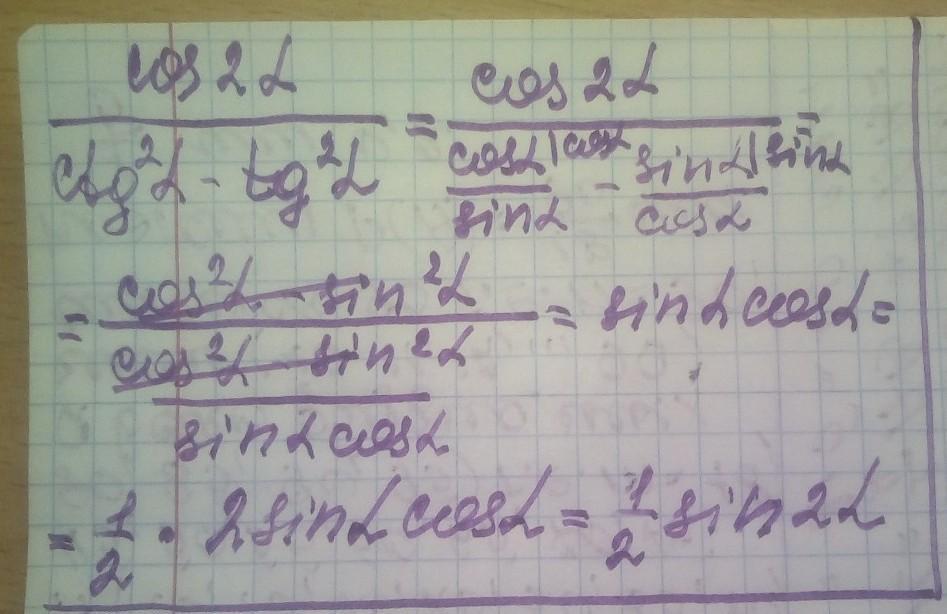 cos 2α / (ctg²α - tg²α) = cos 2α / (cosα/sinα |cosα - sinα/cosα |sinα) =
= (cos²α - sin²α) / ((cos²α - sin²α) / (sinα cosα)) = sinα cosα =
= 1/2 · 2sinα cosα = 1/2 sin 2α